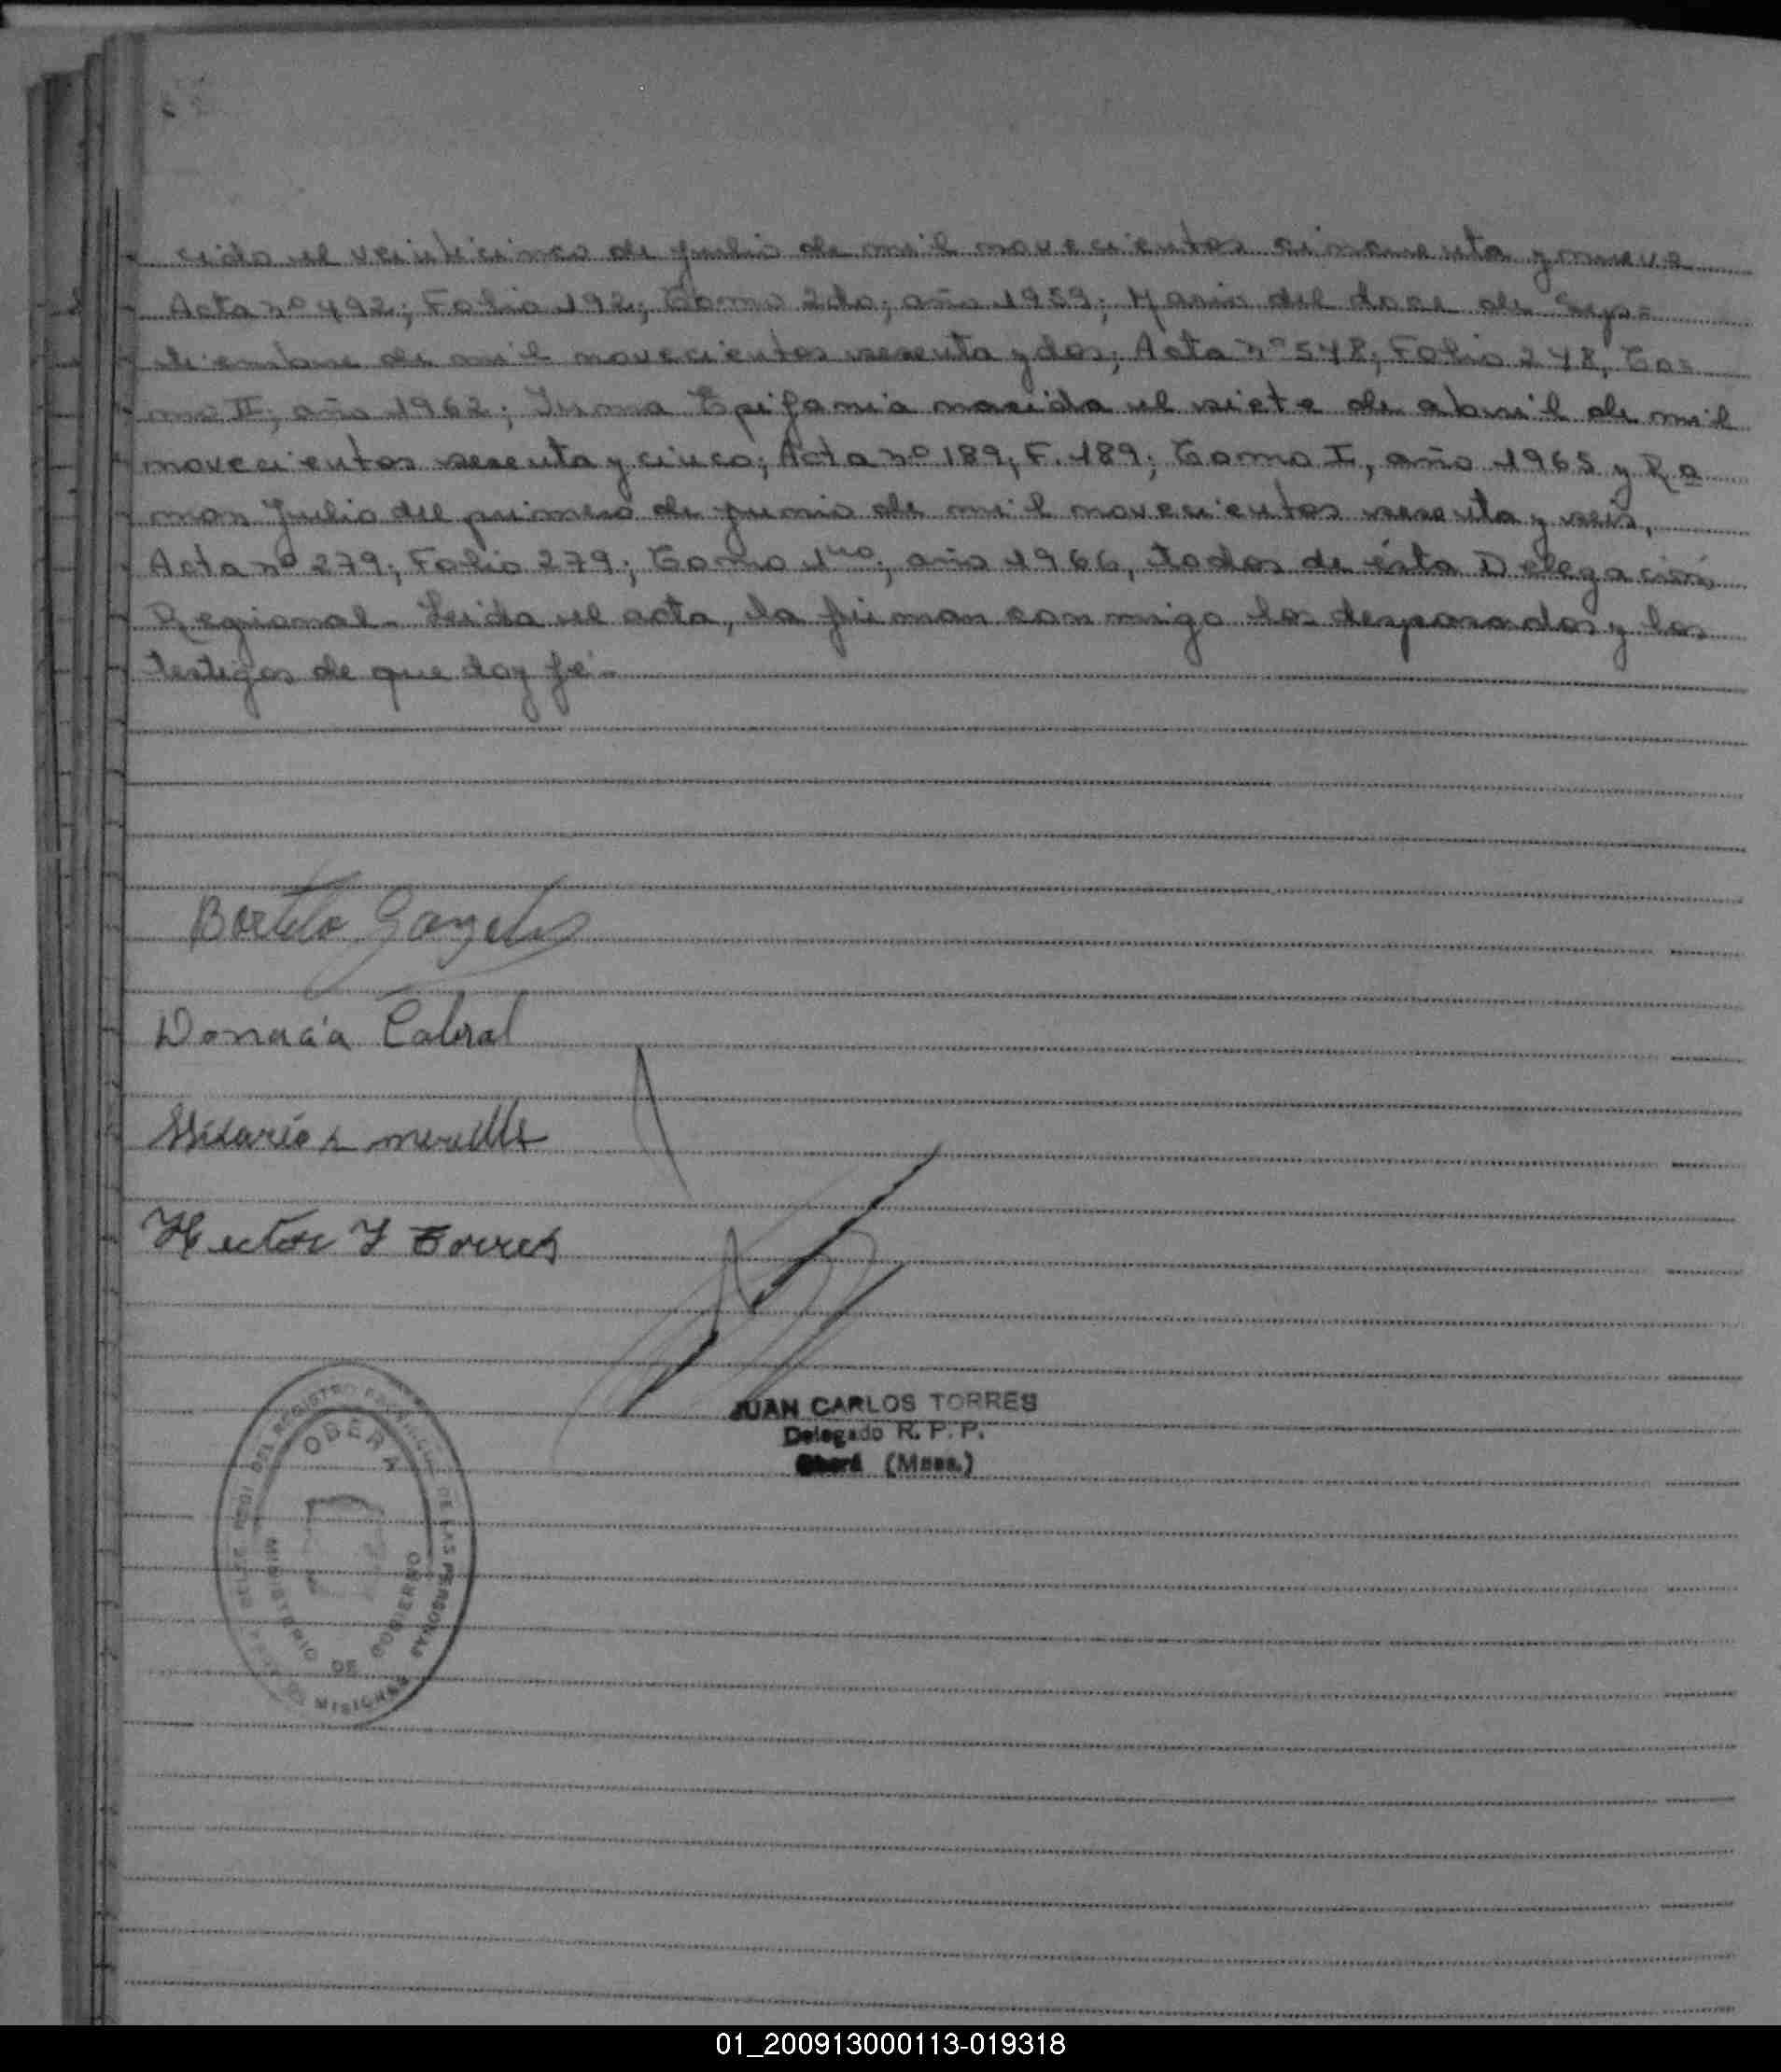 cido el veinticinco de julio de mil novecientos cincuenta y nueve
Acta nº 492; Folio 192; Tomo 2do; año 1959; Mario del doce de Sep=
tiembre de mil novecientos sesenta y dos; Acta nº 548; Folio 248, To=
mo II; año 1962; Irma Epifania nacida el siete de abril de mil
novecientos sesenta y cinco; Acta nº 189; F. 189; Tomo I, año 1965 y Ra
mon Julio del primero de junio de mil novecientos sesenta y seis,
Acta nº 279; Folio 279; Tomo 1ro; año 1966, todos de ésta Delegación
Regional.- Leida el acta, la firman conmigo los desposados y los
testigos de que doy fé.-
Donacia Cabral
Hilario
Hector Y Torres
JUAN CARLOS TORRES
Delegado R. P. P.
Oberá (Mnes.)
DEL REGISTRO DE LAS PERSONAS
OBERA
MINISTERIO DE GOBIERNO
MISIONES
01_200913000113-019318